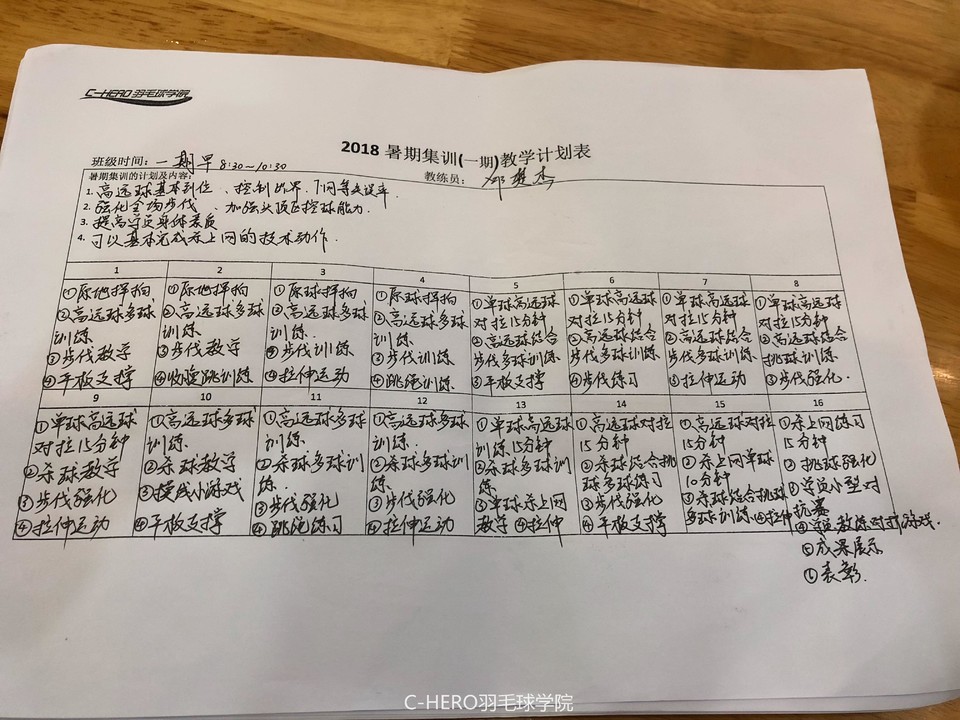 C-HERO 羽毛球学院
2018 暑期集训(一期)教学计划表
班级时间：一期早 8:30~10:30
教练员：
暑期集训的计划及内容:
1. 高远球基本到位、控制出界、下网等失误率
2. 强化全场步伐、加强头顶区控球能力.
3. 提高学员身体素质
4. 可以基本完成杀上网的技术动作.
1
①原地挥拍
②高远球多球
训练
③步伐教学
④平板支撑
2
①原地挥拍
②高远球多球
训练
③步伐教学
④收腹跳训练
3
①原球挥拍
②高远球多球
训练.
③步伐训练
④拉伸运动
4
①原球挥拍
②高远球多球
训练
③步伐训练
④跳绳训练
5
①单球高远球
对拉15分钟
②高远球结合
步伐多球训练
③平板支撑
6
①单球高远球
对拉15分钟
②高远球结合
步伐多球训练
③步伐练习
7
①单球高远球
对拉15分钟
②高远球结合
步伐多球训练
③拉伸运动
8
①单球高远球
对拉15分钟
②高远球结合
挑球训练
③步伐强化.
9
①单球高远球
对拉15分钟
②杀球教学
③步伐强化
④拉伸运动
10
①高远球多球
训练
②杀球教学
③摸线小游戏
④平板支撑
11
①高远球多球
训练.
②杀球多球训
练.
③步伐强化
④跳绳练习
12
①高远球多球
训练.
②杀球多球训
练
③步伐强化
④拉伸运动
13
①单球高远球
训练15分钟
②杀球多球训
练
③单球杀上网
教学 ④拉伸
14
①高远球对拉
15分钟
②杀球结合挑
球多球练习
③步伐强化
④平板支撑
15
①高远球对拉
15分钟
②杀上网单球
10分钟
③杀球结合挑球
多球训练.④拉伸
16
①杀上网练习
15分钟
②挑球强化
③学员小型对
抗赛
④学员教练对打游戏.
⑤成果展示
⑥表彰.
C-HERO羽毛球学院